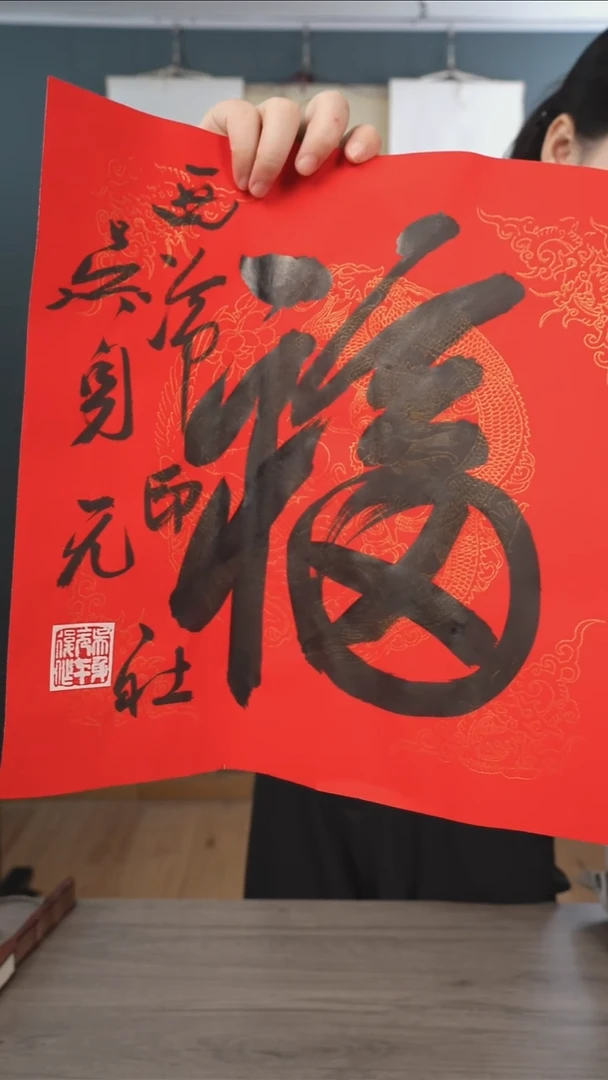 福
西泠印社
吴身元